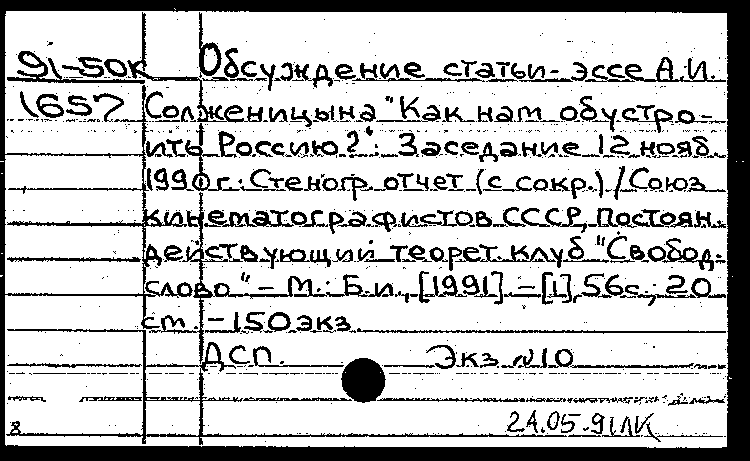 91-50К Обсуждение статьи-эссе А.И.
1657 Солженицына "Как нам обустро-
ить Россию?": Заседание 12 нояб.
1990г.: Стеногр. отчет (с сокр.)/Союз
кинематографистов СССР, Постоян.
действующий теорет. клуб "Свобод.
слово". - М.: Б.и., [1991]. - [1], 56с.; 20
см. - 150экз.
ДСП. Экз №10
24.05.91ЛК
8